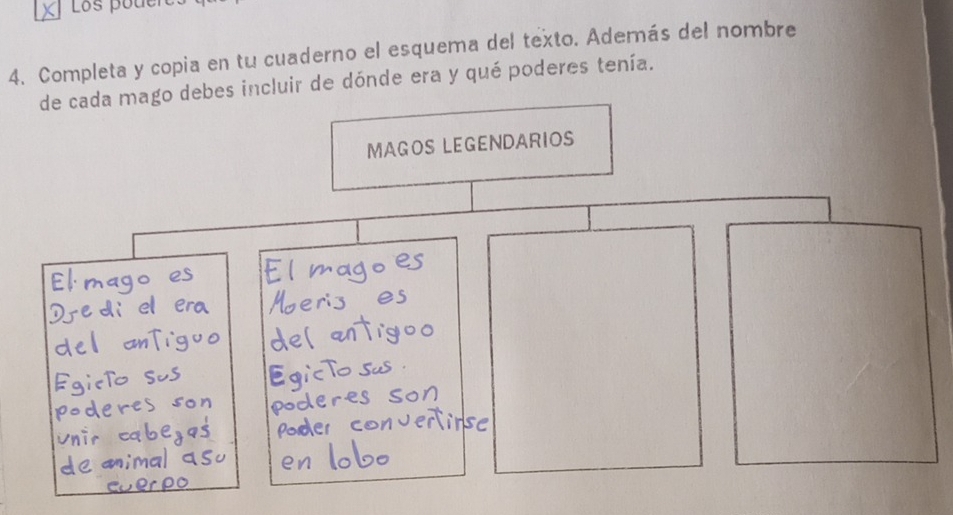 Los
4. Completa y copia en tu cuaderno el esquema del texto. Además del nombre
de cada mago debes incluir de dónde era y qué poderes tenía.
MAGOS LEGENDARIOS
El mago es
Dsedi el era
del antiguo
Egicto sus
poderes son
unir cabezas
de animal asu
cuerpo
El mago es
Moeris es
del antigoo
Egicto sus.
poderes son
poder convertirse
en lobo